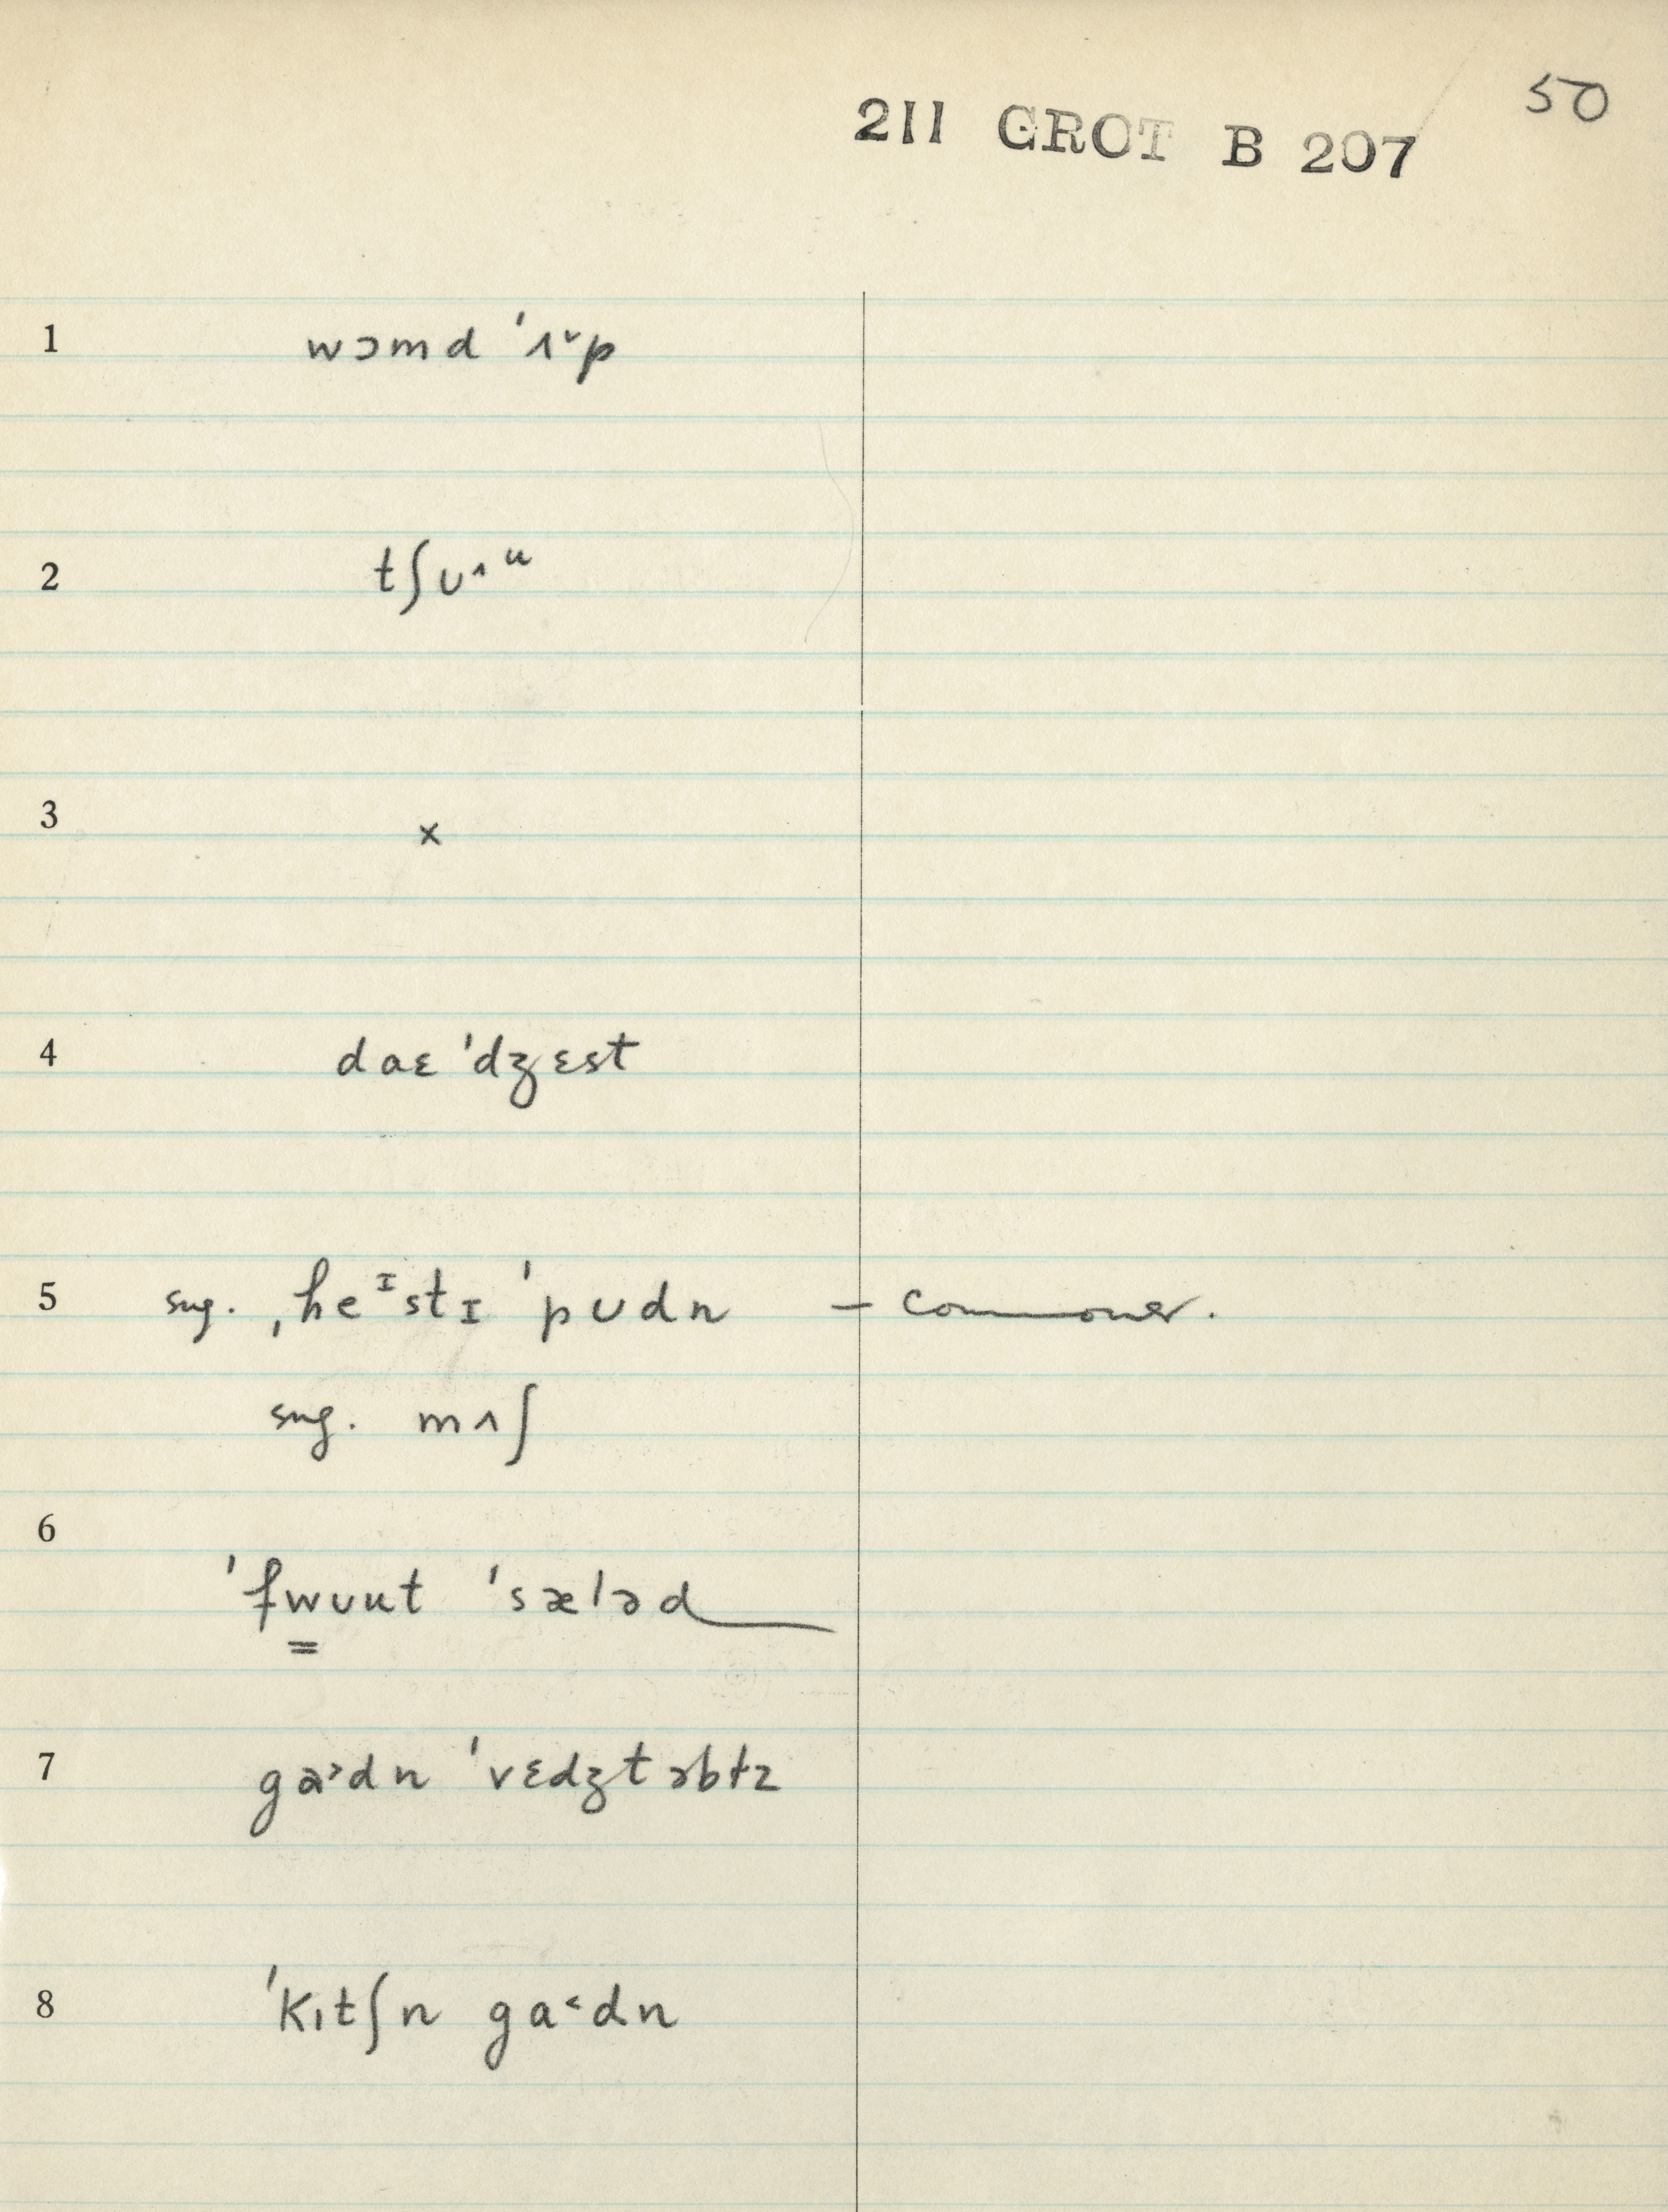 50
211 GROT B 207
1 wɔmd ˈʌ˅p
2 tʃʊ˄ᵘ
3 x
4 daɛ ˈdʒɛst
5 sug. ˌheᴵstɪ ˈpʊdn – commoner.
sug. mʌʃ
6
ˈfwʊut ˈsæləd
7 ga˃dn ˈvɛdʒtəbɫz
8 ˈkɪtʃn ga˂dn